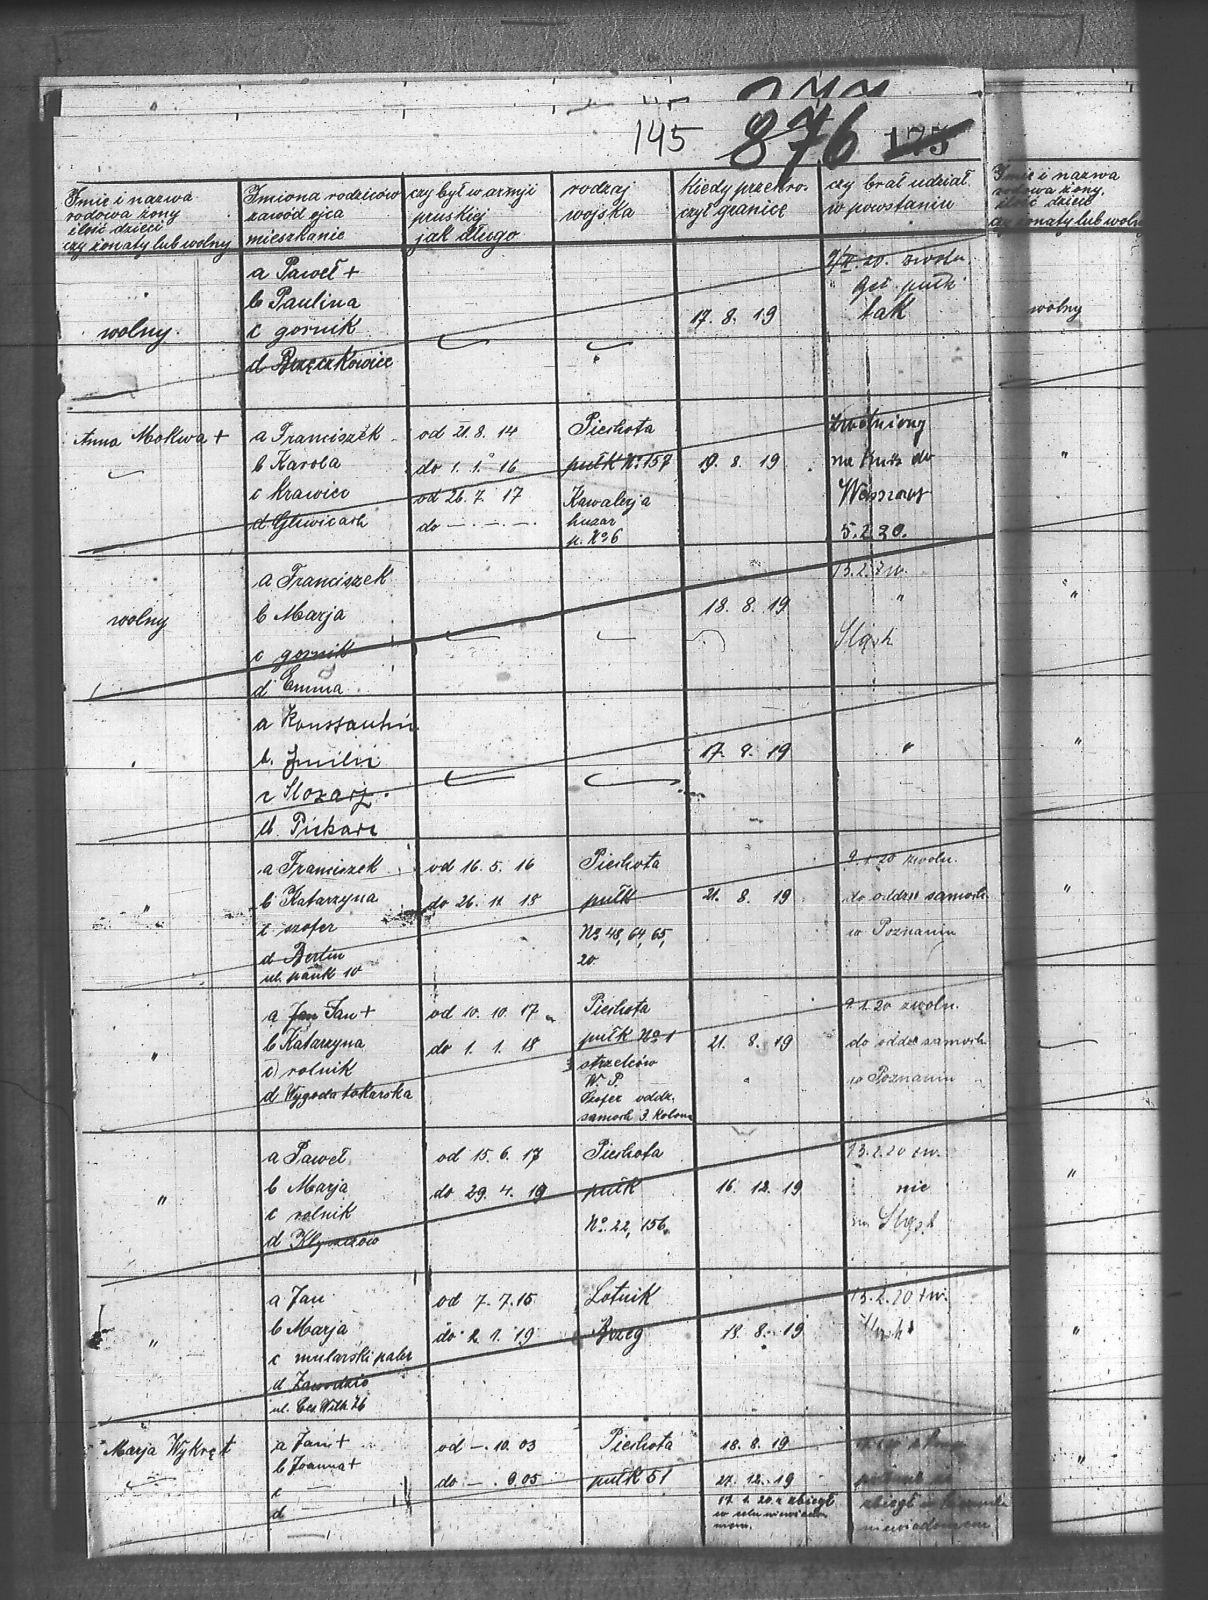 145 876 175
Imię i nazwa
rodowa żony
ilość dzieci
czy żonaty lub wolny
Imiona rodziców
zawód ojca
mieszkanie
czy był w armji
pruskiej
jak długo
rodzaj
wojska
kiedy przekro-
czył granicę
czy brał udział
w powstaniu
Imię i nazwa
rodowa żony
ilość dzieci
czy żonaty lub woln
wolny
a Paweł +
b Paulina
c gornik
d Brzęczkowice
17. 8. 19
20. zwoln.
tak
wolny
Anna Mokwa +
a Franciszek
b Karola
c krawiec
d Gliwicach
od 21. 8. 14
do 1. 1. 16
od 26. 7. 17
do — . — . — .
Piechota
pułk No 157
Kawalerja
huzar
p. No 6
19. 8. 19
zwolniony
na kurs do
Warszawy
5. 2. 20.
"
wolny
a Franciszek
b Marja
c gornik
d Emma
18. 8. 19
13. 2. zw.
"
Sląsk
"
a Konstantin
b.
c Slosarz
d Piekare
17. 8. 19
"
"
"
a Franciszek
b Katarzyna
c szofer
d Berlin
ul. pank 10
od 16. 5. 16
do 26. 11. 18
Piechota
pułk
No 48, 64, 65,
20
21. 8. 19
9. 1. 20 zwoln.
do oddzi samoch
w Poznaniu
"
"
a Jan Jan +
b Katarzyna
c) rolnik
d Wygoda tokarska
od 10. 10. 17
do 1. 1. 18
Piechota
pułk No 1
strzelców
W. P.
Szofer oddz.
samoch 3. kolona
21. 8. 19
9. 1. 20 zwoln.
do oddz samoch
w Poznaniu
"
a Paweł
b Marja
c rolnik
d
od 15. 6. 17
do 29. 4. 19
Piechota
pułk
No 22, 156.
16. 12. 19
13. 2. 20 zw.
nie
na Sląsk
"
"
a Jan
b Marja
c mularski palier
d Zawodzie
ul. Ces. Wilh 76
od 7. 7. 15
do 2. 1. 19
Lotnik
Brzeg
18. 8. 19
13. 2. 20 zw.
"
Marja Wykręt
a Jan +
b Joanna +
c —
d —
od — . 10. 03
do — . 9. 05
Piechota
pułk 51
18. 8. 19
27. 12. 19
17. 1. 20. r zbiegł
w celu niewiado
mem.
zbiegł w kierunku
niewiadomem
"